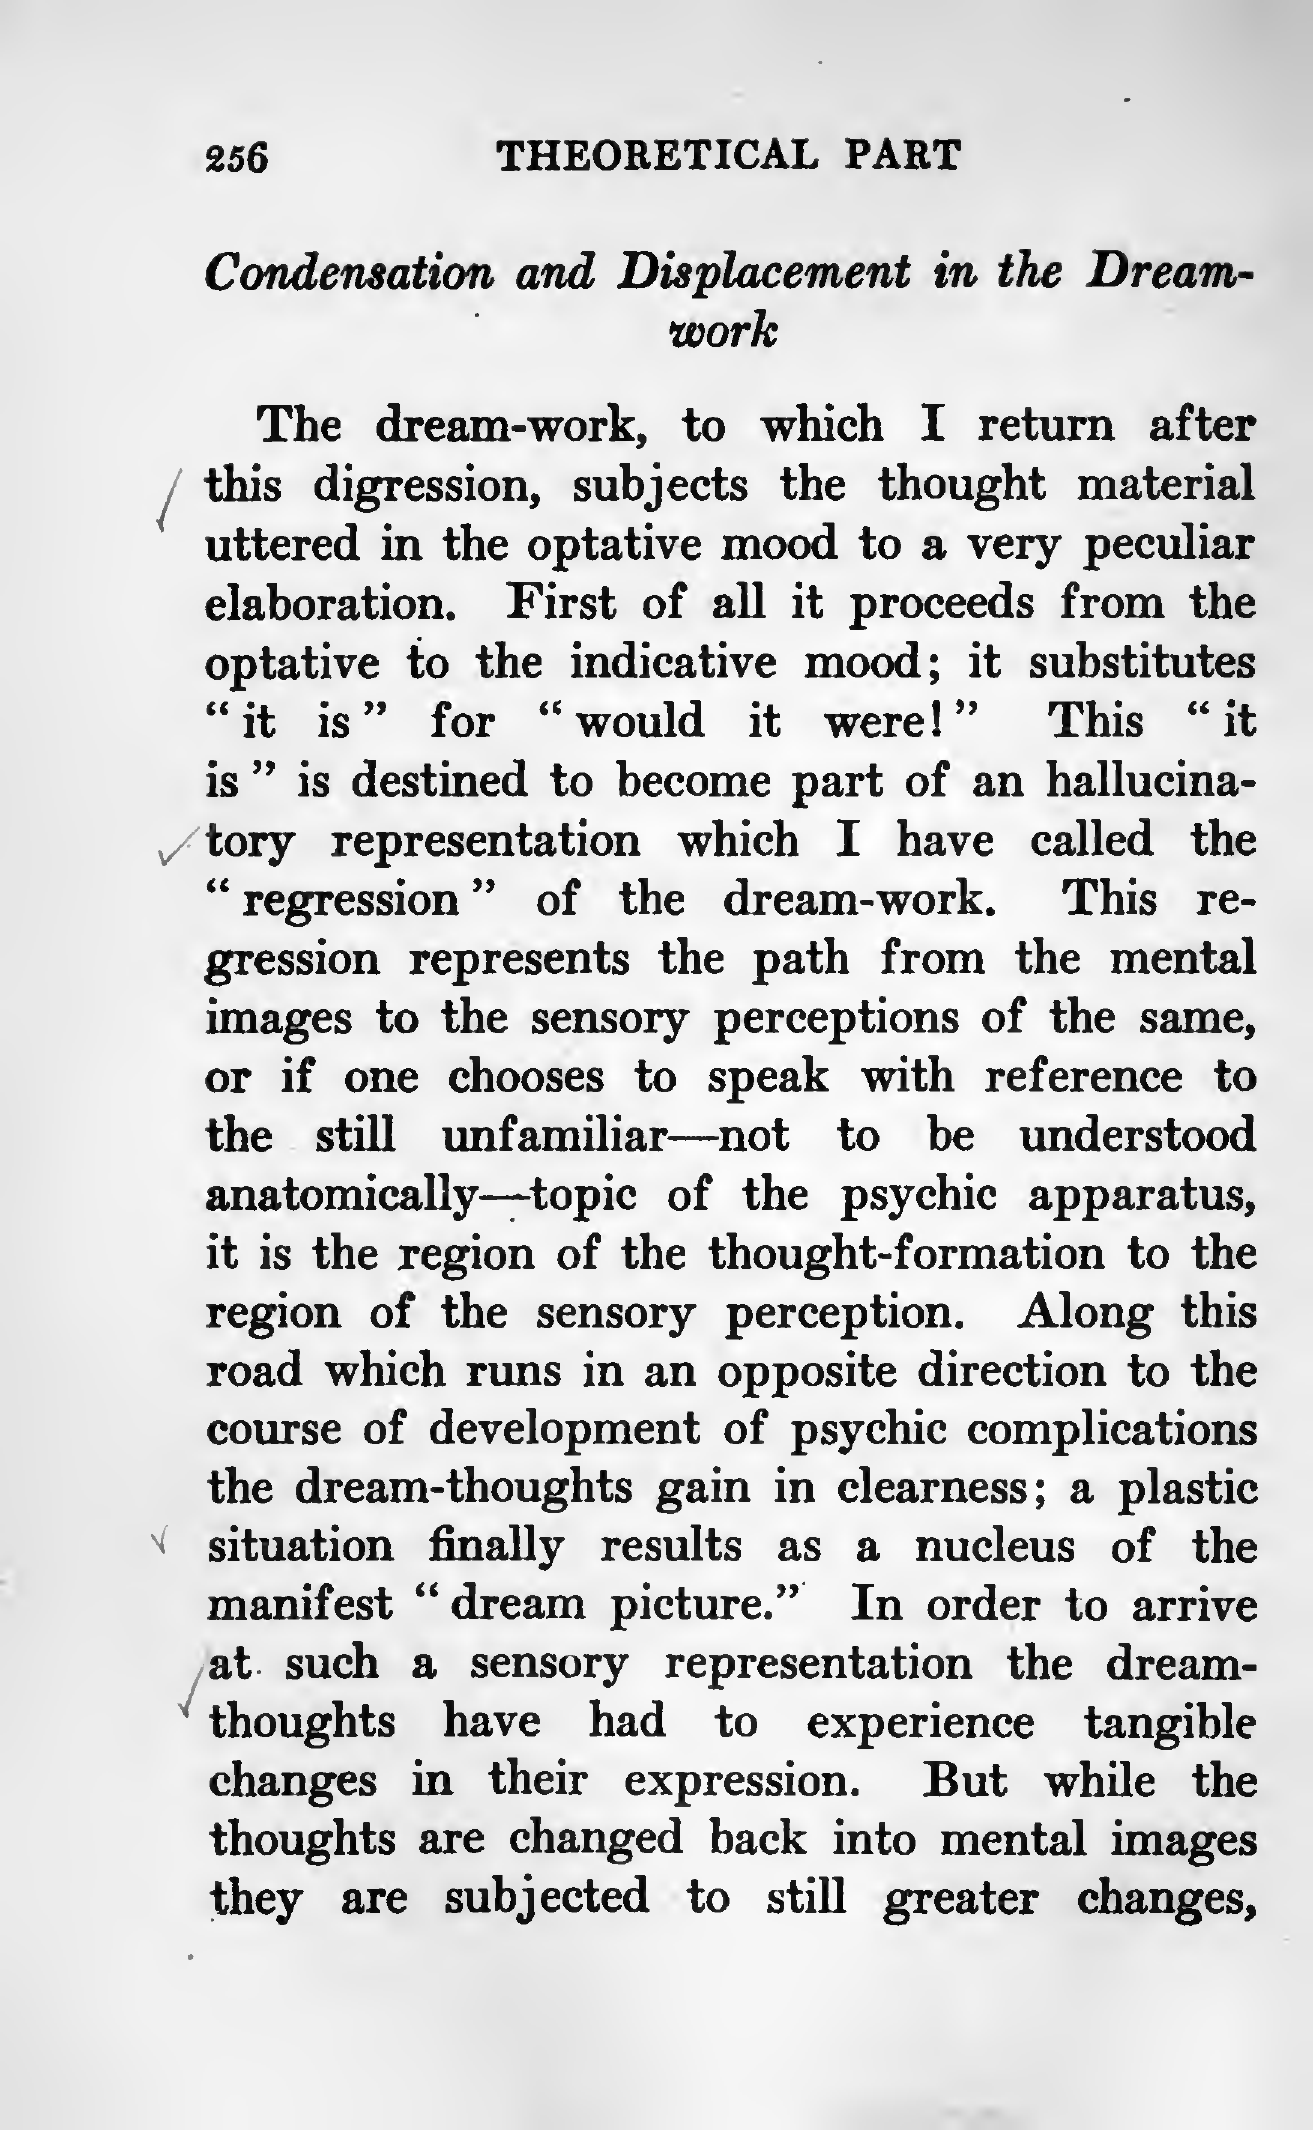 256 THEORETICAL PART
Condensation and Displacement in the Dream-
work
The dream-work, to which I return after
this digression, subjects the thought material
uttered in the optative mood to a very peculiar
elaboration. First of all it proceeds from the
optative to the indicative mood; it substitutes
“ it is ” for “ would it were! ” This “ it
is ” is destined to become part of an hallucina-
tory representation which I have called the
“ regression ” of the dream-work. This re-
gression represents the path from the mental
images to the sensory perceptions of the same,
or if one chooses to speak with reference to
the still unfamiliar—not to be understood
anatomically—topic of the psychic apparatus,
it is the region of the thought-formation to the
region of the sensory perception. Along this
road which runs in an opposite direction to the
course of development of psychic complications
the dream-thoughts gain in clearness; a plastic
situation finally results as a nucleus of the
manifest “ dream picture.” In order to arrive
at such a sensory representation the dream-
thoughts have had to experience tangible
changes in their expression. But while the
thoughts are changed back into mental images
they are subjected to still greater changes,